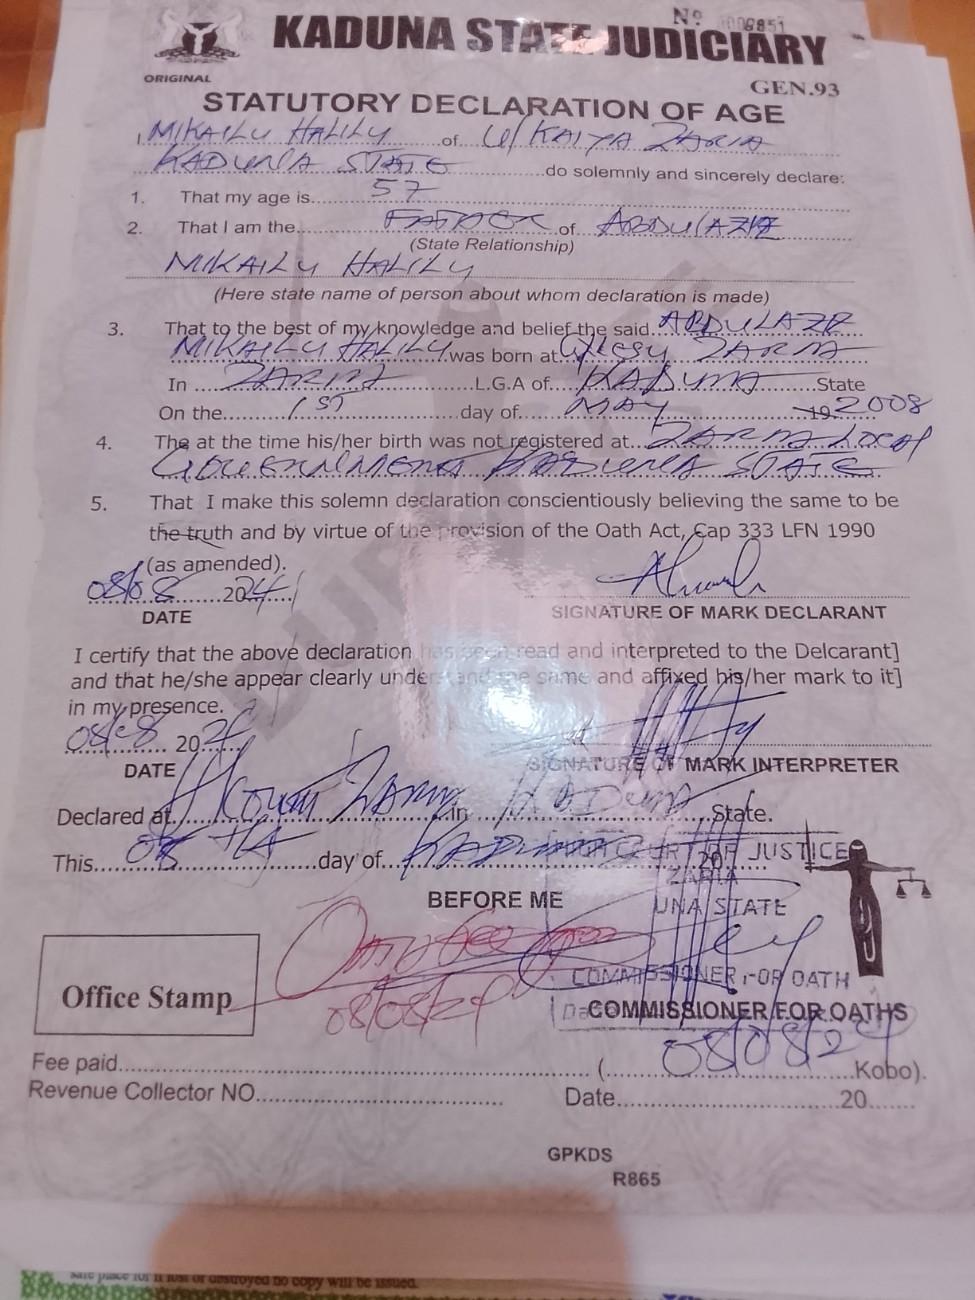 Nº 006851
KADUNA STATE JUDICIARY
ORIGINAL
GEN.93
STATUTORY DECLARATION OF AGE
I, MIKAILU HALILU of U/KAIYA ZARIA
KADUNA STATE do solemnly and sincerely declare:
1. That my age is 57
2. That I am the FATHER of ABDULAZIZ
(State Relationship)
MIKAILU HALILU
(Here state name of person about whom declaration is made)
3. That to the best of my knowledge and belief the said ABDULAZIZ
MIKAILU HALILU was born at ZARIA
In ZARIA L.G.A of KADUNA State
On the 1ST day of MAY 19 2008
4. The at the time his/her birth was not registered at ZARIA LOCAL
GOVERNMENT KADUNA STATE
5. That I make this solemn declaration conscientiously believing the same to be
the truth and by virtue of the provision of the Oath Act, Cap 333 LFN 1990
(as amended).
08/08 2024
DATE
SIGNATURE OF MARK DECLARANT
I certify that the above declaration has been read and interpreted to the Delcarant]
and that he/she appear clearly under and the same and affixed his/her mark to it]
in my presence.
08/08 2024
DATE
SIGNATURE OF MARK INTERPRETER
Declared at H/Court Zaria in KADUNA State.
This 08th day of 20
COURT OF JUSTICE
ZARIA
UNA STATE
BEFORE ME
COMMISSIONER FOR OATH
Office Stamp
08/08/24
COMMISSIONER FOR OATHS
08/08/24
Fee paid ( Kobo).
Revenue Collector NO Date 20
GPKDS
R865
safe place for if lost or destroyed no copy will be issued.